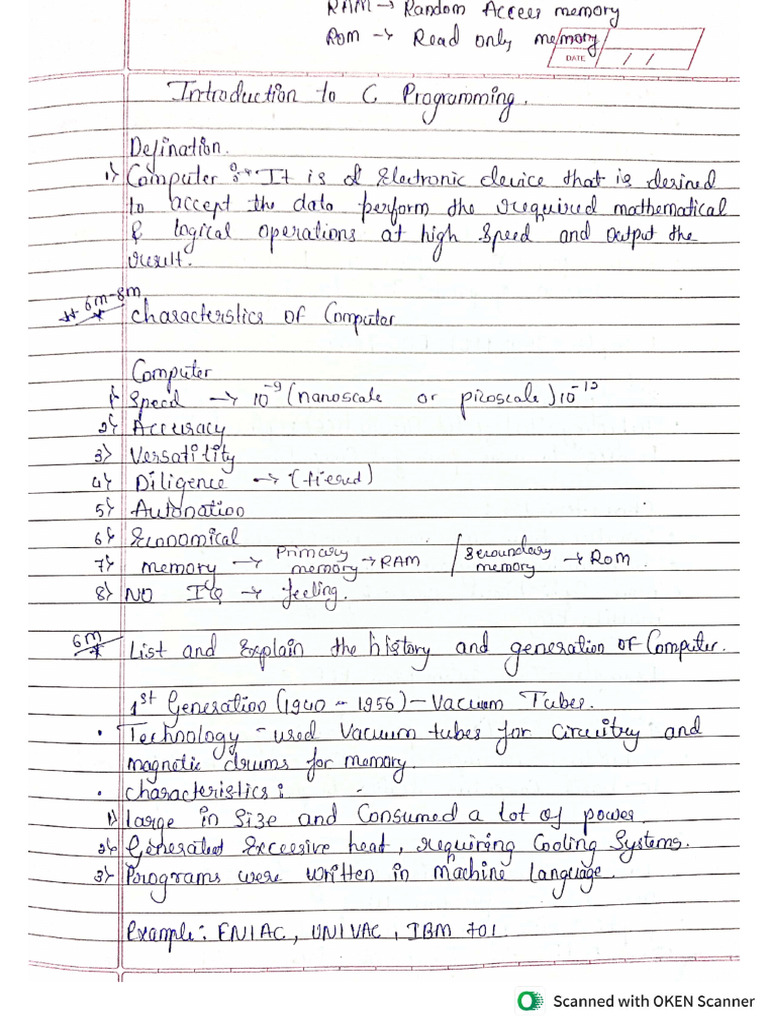 RAM → Random Access memory
Rom → Read only memory
DATE / /
Introduction to C Programming.
Defination.
1) Computer :- It is a Electronic device that is desined
to accept the data perform the required mathematical
& logical operations at high speed and output the
result.
** 6m-8m
Characterstics of Computer
Computer
1) Speed → 10⁻⁹ (nanoscale or picoscale) 10⁻¹²
2) Accuracy
3) Versatility
4) Diligence → (tiered)
5) Automation
6) Economical
7) memory → Primary memory → RAM / Secoundary memory → Rom
8) NO IQ → feeling.
6m *
List and Explain the history and generation of Computer.
1st Generation (1940 - 1956) - Vacuum Tubes.
• Technology - used Vacuum tubes for circuitry and
magnetic drums for memory.
• Characteristics:
1) large in size and Consumed a lot of power.
2) Generated Excessive heat, requiring Cooling Systems.
3) Programs were written in machine language.
Example: ENIAC, UNIVAC, IBM 701.
Scanned with OKEN Scanner